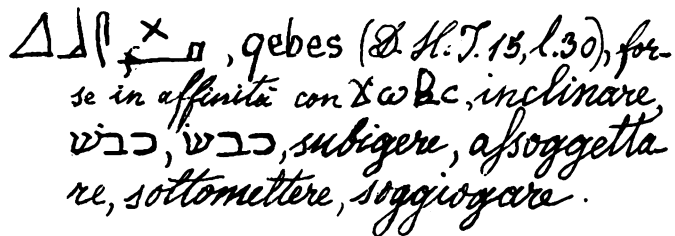 𓈎𓃀𓋴 , qebes (D. H. T. 15, l.30), for-
se in affinità con ϫⲱⲃⲥ, inclinare,
כבשׁ, כבשׂ, subigere, assoggetta-
re, sottomettere, soggiogare.